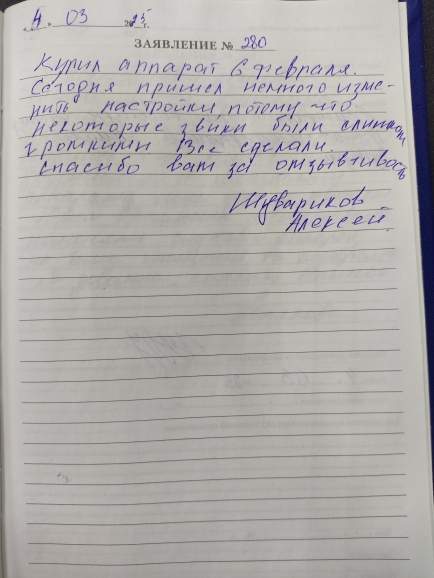 4. 03 2025
ЗАЯВЛЕНИЕ № 280
Купил аппарат 6 февраля.
Сегодня пришел немного изме-
нить настройки, потому что
некоторые звуки были слишком
громкими Все сделали.
Спасибо вам за отзывчивость
Шувариков
Алексей.